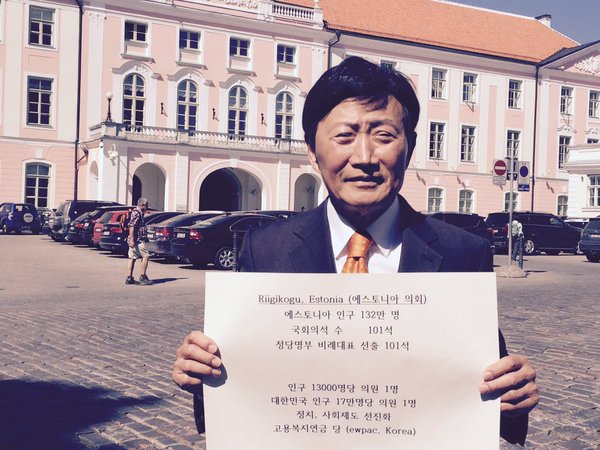 Riigikogu, Estonia (에스토니아 의회)
에스토니아 인구 132만 명
국회의석 수 101석
정당명부 비례대표 선출 101석
인구 13000명당 의원 1명
대한민국 인구 17만명당 의원 1명
정치, 사회제도 선진화
고용복지연금 당 (ewpac, Korea)